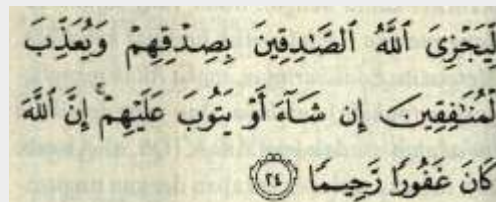 لِّيَجْزِىَ ٱللَّهُ ٱلصَّـٰدِقِينَ بِصِدْقِهِمْ وَيُعَذِّبَ
ٱلْمُنَـٰفِقِينَ إِن شَآءَ أَوْ يَتُوبَ عَلَيْهِمْ ۚ إِنَّ ٱللَّهَ
كَانَ غَفُورًا رَّحِيمًا ﴿٢٤﴾